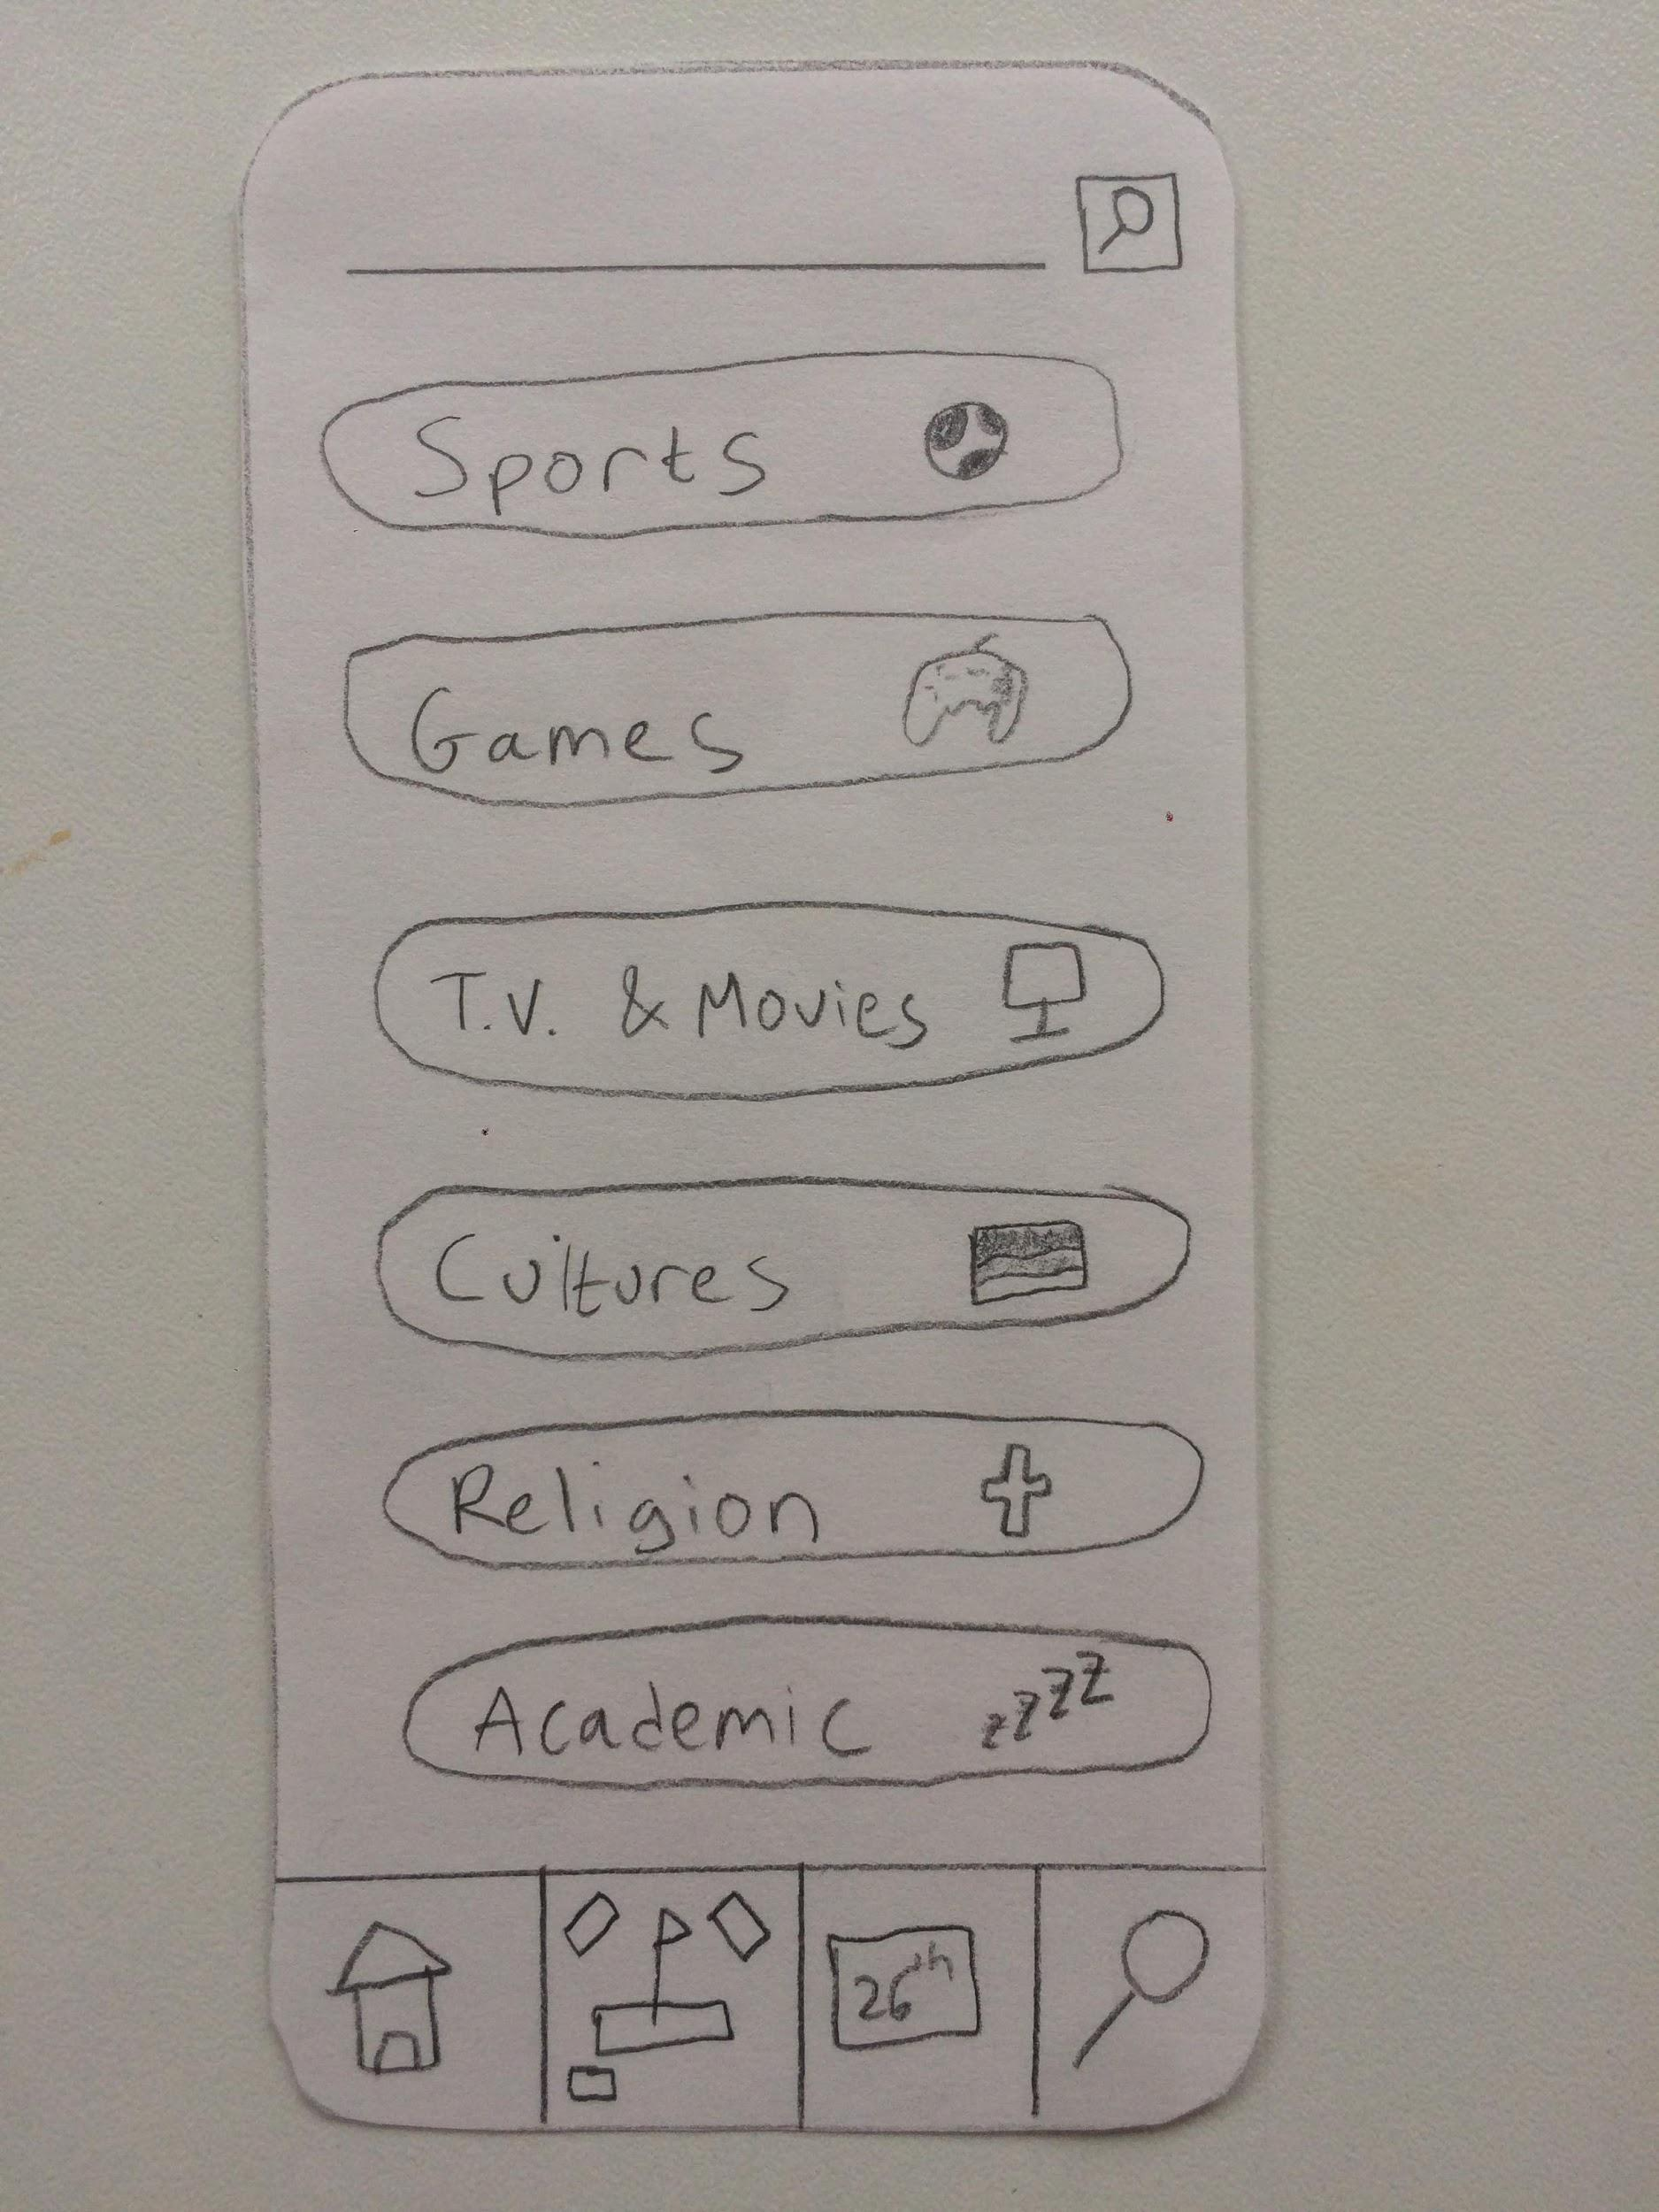 Sports
Games
T.V. & Movies
Cultures
Religion
Academic zzzz
26th